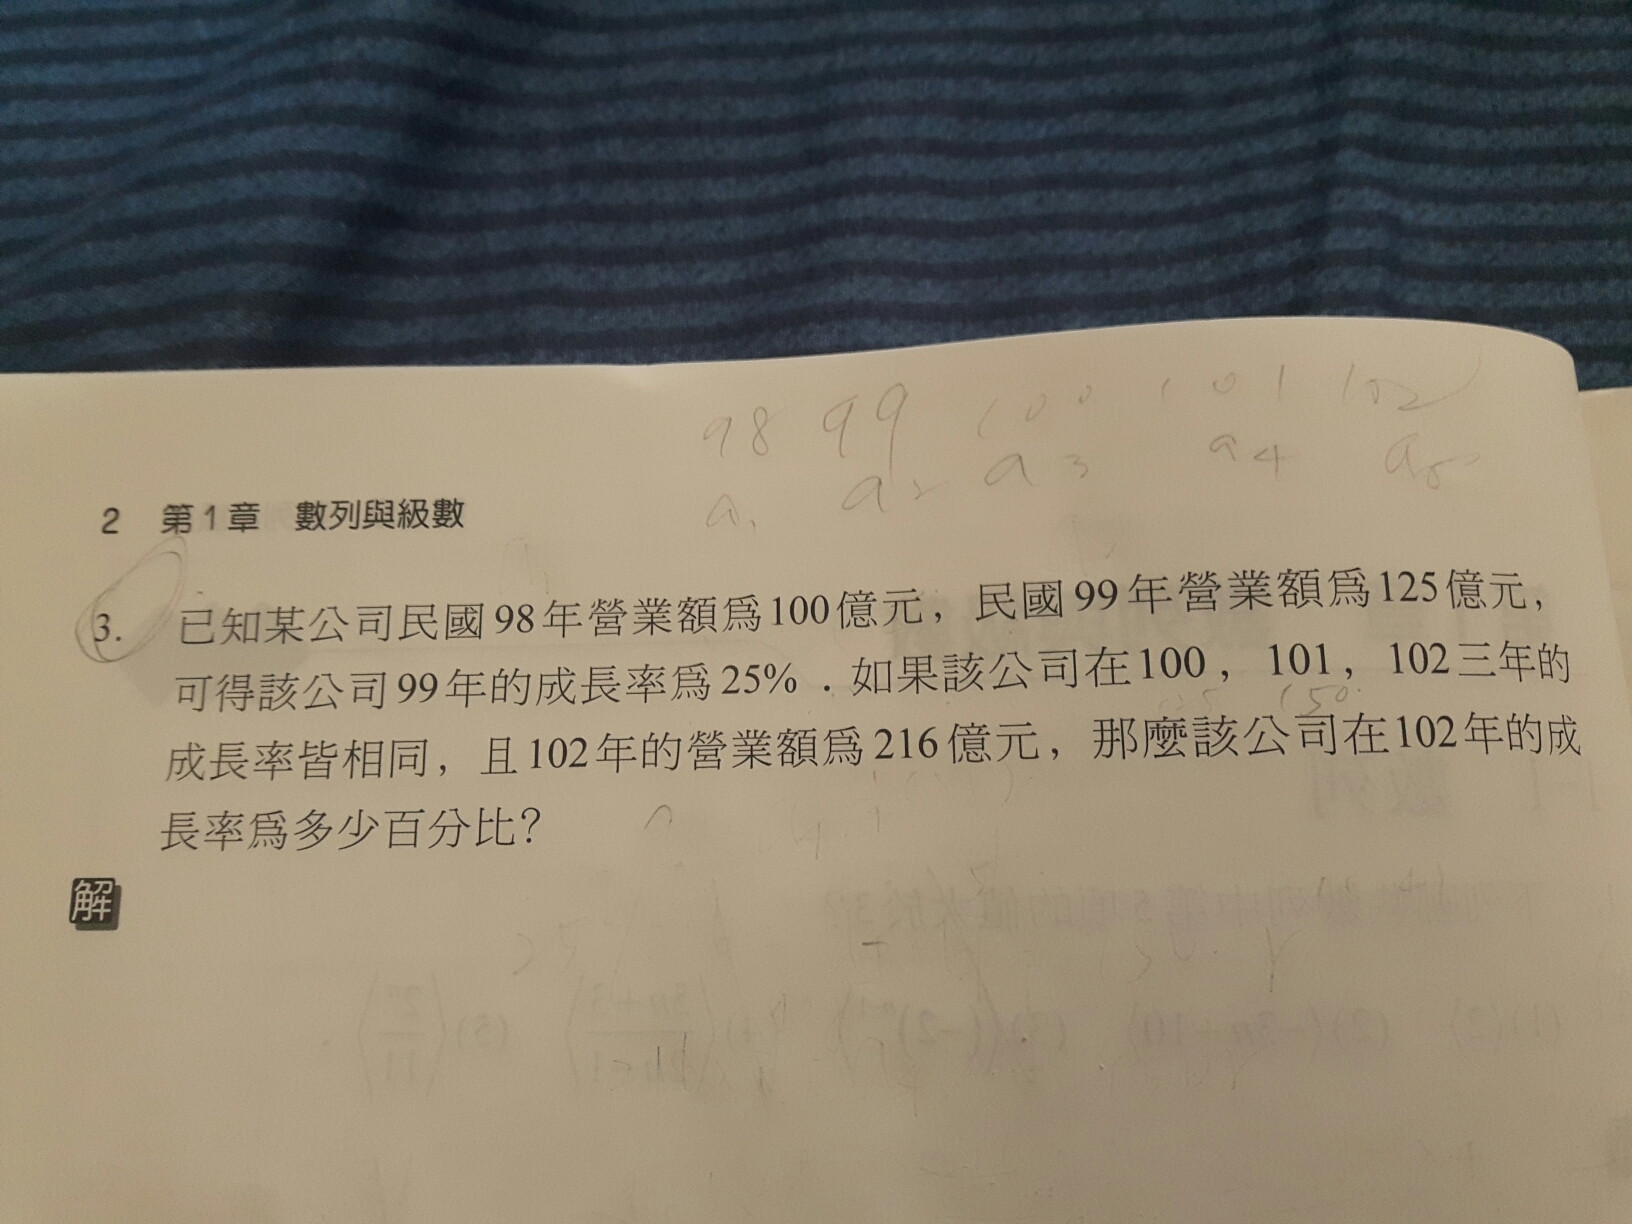 98 99 100 101 102
a1 a2 a3 a4 a5
2 第1章 數列與級數
3. 已知某公司民國98年營業額爲100億元，民國99年營業額爲125億元，
可得該公司99年的成長率爲25%．如果該公司在100，101，102三年的
150
成長率皆相同，且102年的營業額爲216億元，那麼該公司在102年的成
長率爲多少百分比？
解